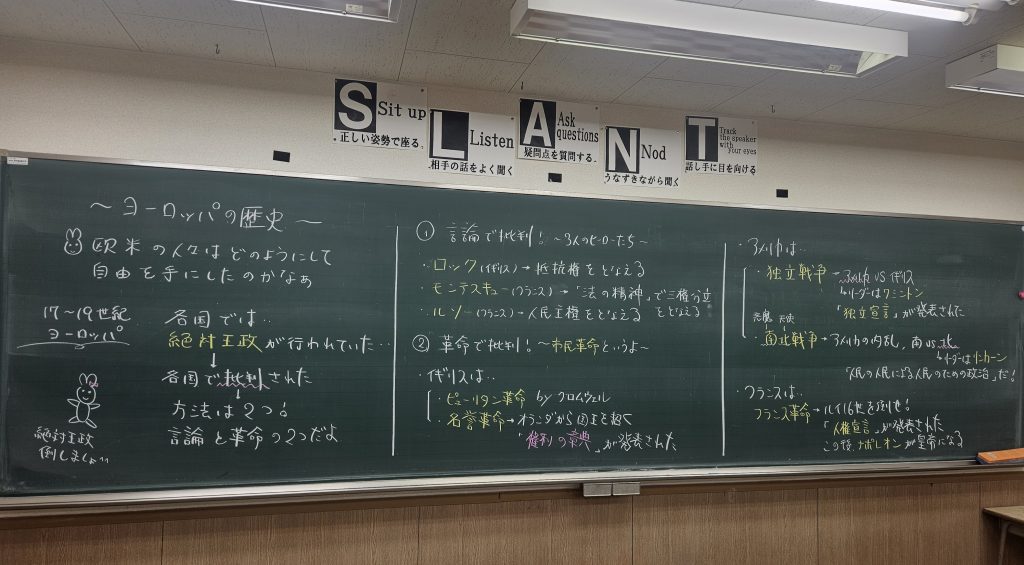 S Sit up
正しい姿勢で座る。
L Listen
相手の話をよく聞く
A Ask questions
疑問点を質問する。
N Nod
うなずきながら聞く
T Track the speaker with your eyes
話し手に目を向ける
～ヨーロッパの歴史～
欧米の人々はどのようにして
自由を手にしたのかなぁ
17～19世紀
ヨーロッパ
各国では‥
絶対王政が行われていた…
↓
各国で批判された
↓
方法は2つ!
言論と革命の2つだよ
絶対王政
倒しましょ
① 言論で批判! ～3人のヒーローたち～
・ロック(イギリス)→抵抗権をとなえる
・モンテスキュー(フランス)→「法の精神」で三権分立をとなえる
・ルソー(フランス)→人民主権をとなえる
② 革命で批判! ～市民革命というよ～
・イギリスは‥
・ピューリタン革命 by クロムウェル
・名誉革命→オランダから国王を招く
「権利の章典」が発表された
・アメリカは‥
・独立戦争→アメリカ VS イギリス
↳リーダーはワシントン
「独立宣言」が発表された
悪魔 天使
・南北戦争→アメリカの内乱, 南 VS 北
↳リーダーはリンカーン
「人民の人民による人民のための政治」だ!
・フランスは‥
フランス革命→ルイ16世を倒せ!
「人権宣言」が発表された
この後, ナポレオンが皇帝になる